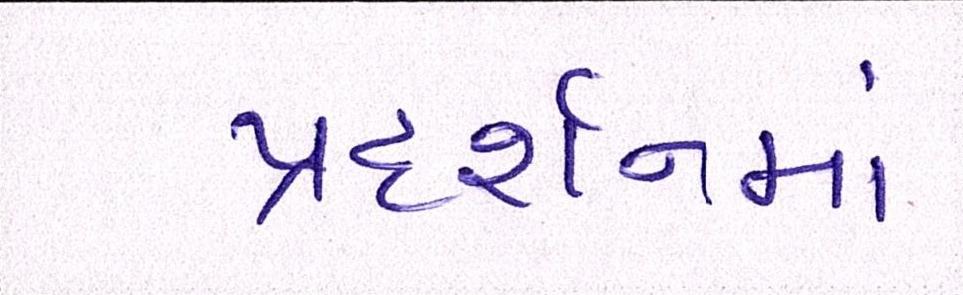 પ્રદર્શનમાં